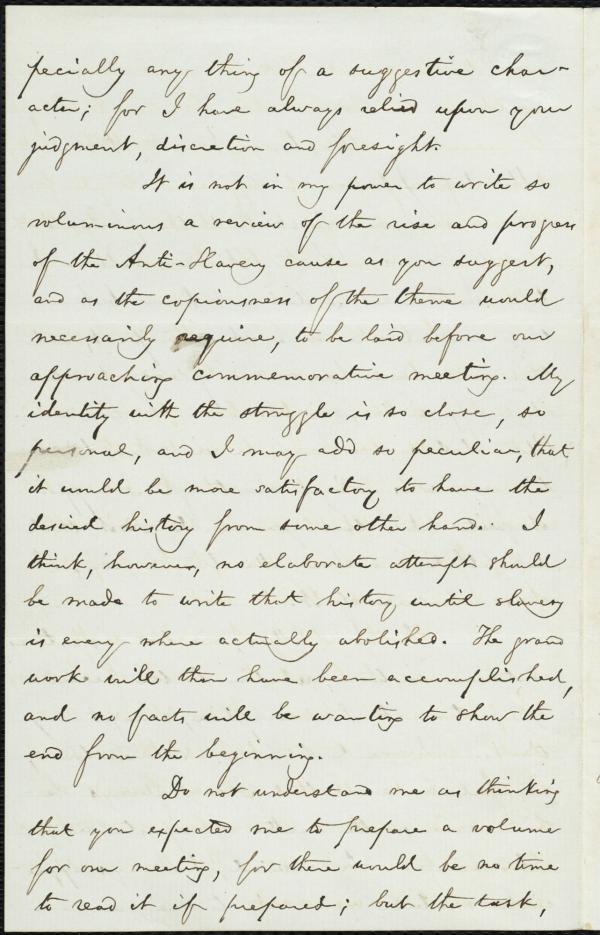 pecially any thing of a suggestive char-
acter; for I have always relied upon your
judgment, discretion and foresight.
It is not in my power to write so
voluminous a review of the rise and progress
of the Anti-Slavery cause as you suggest,
and as the copiousness of the theme would
necessarily require, to be laid before our
approaching commemorative meeting. My
identity with the struggle is so close, so
personal, and I may add so peculiar, that
it would be more satisfactory to have the
desired history from some other hand. I
think, however, no elaborate attempt should
be made to write that history until slavery
is every where actually abolished. The grand
work will then have been accomplished,
and no facts will be wanting to show the
end from the beginning.
Do not understand me as thinking
that you expected me to prepare a volume
for our meeting, for there would be no time
to read it if prepared; but the task,